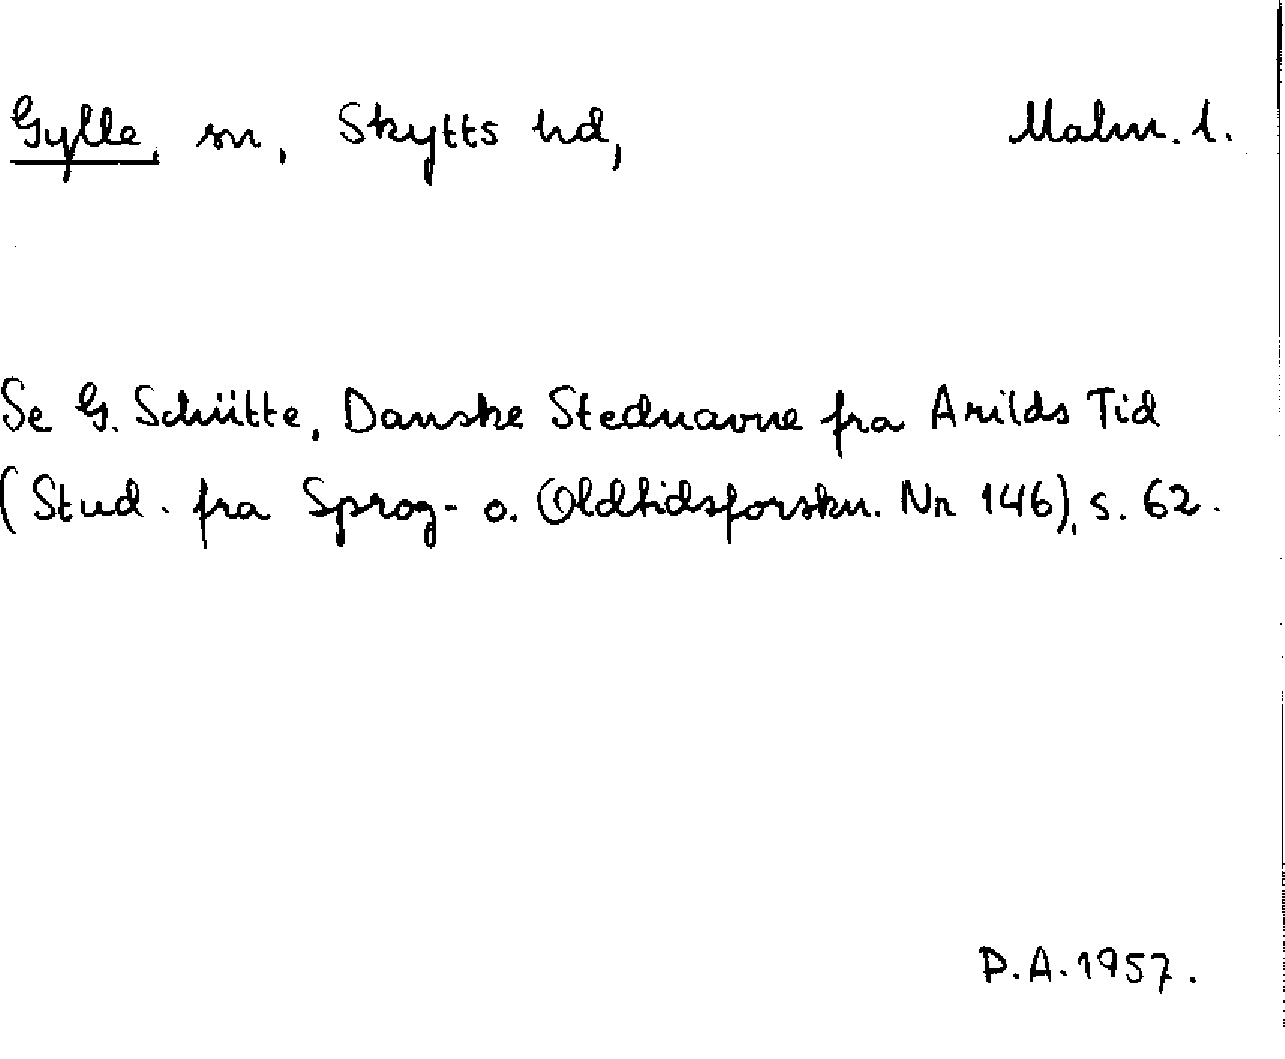 Gylle sn, Skytts hd, Malm. l.
Se G. Schütte, Danske Stednavne fra Arilds Tid
(Stud. fra Sprog- o. Oldtidsforskn. Nr 146), s. 62.
P.A. 1957.